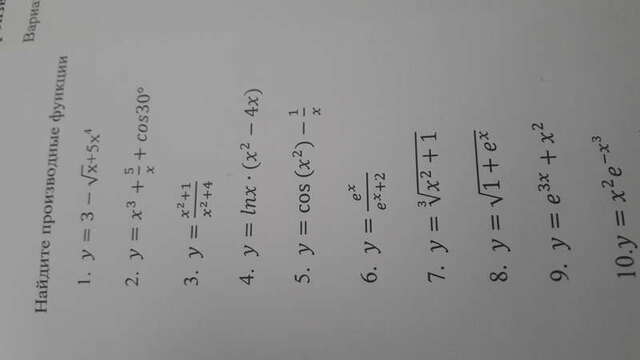 Вариа
Найдите производные функции
1. y = 3 − √x+5x⁴
2. y = x³ + 5/x + cos30°
3. y = (x²+1)/(x²+4)
4. y = lnx · (x² − 4x)
5. y = cos (x²) − 1/x
6. y = eˣ/(eˣ+2)
7. y = ∛(x² + 1)
8. y = √(1 + eˣ)
9. y = e³ˣ + x²
10.y = x²e^(−x³)